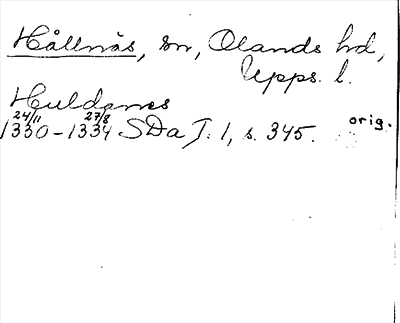 Hållnäs, sn, Olands hd,
Upps. l.
Huldarnes
24/11 27/8
1330-1334 SDa T. 1, s. 345. orig.